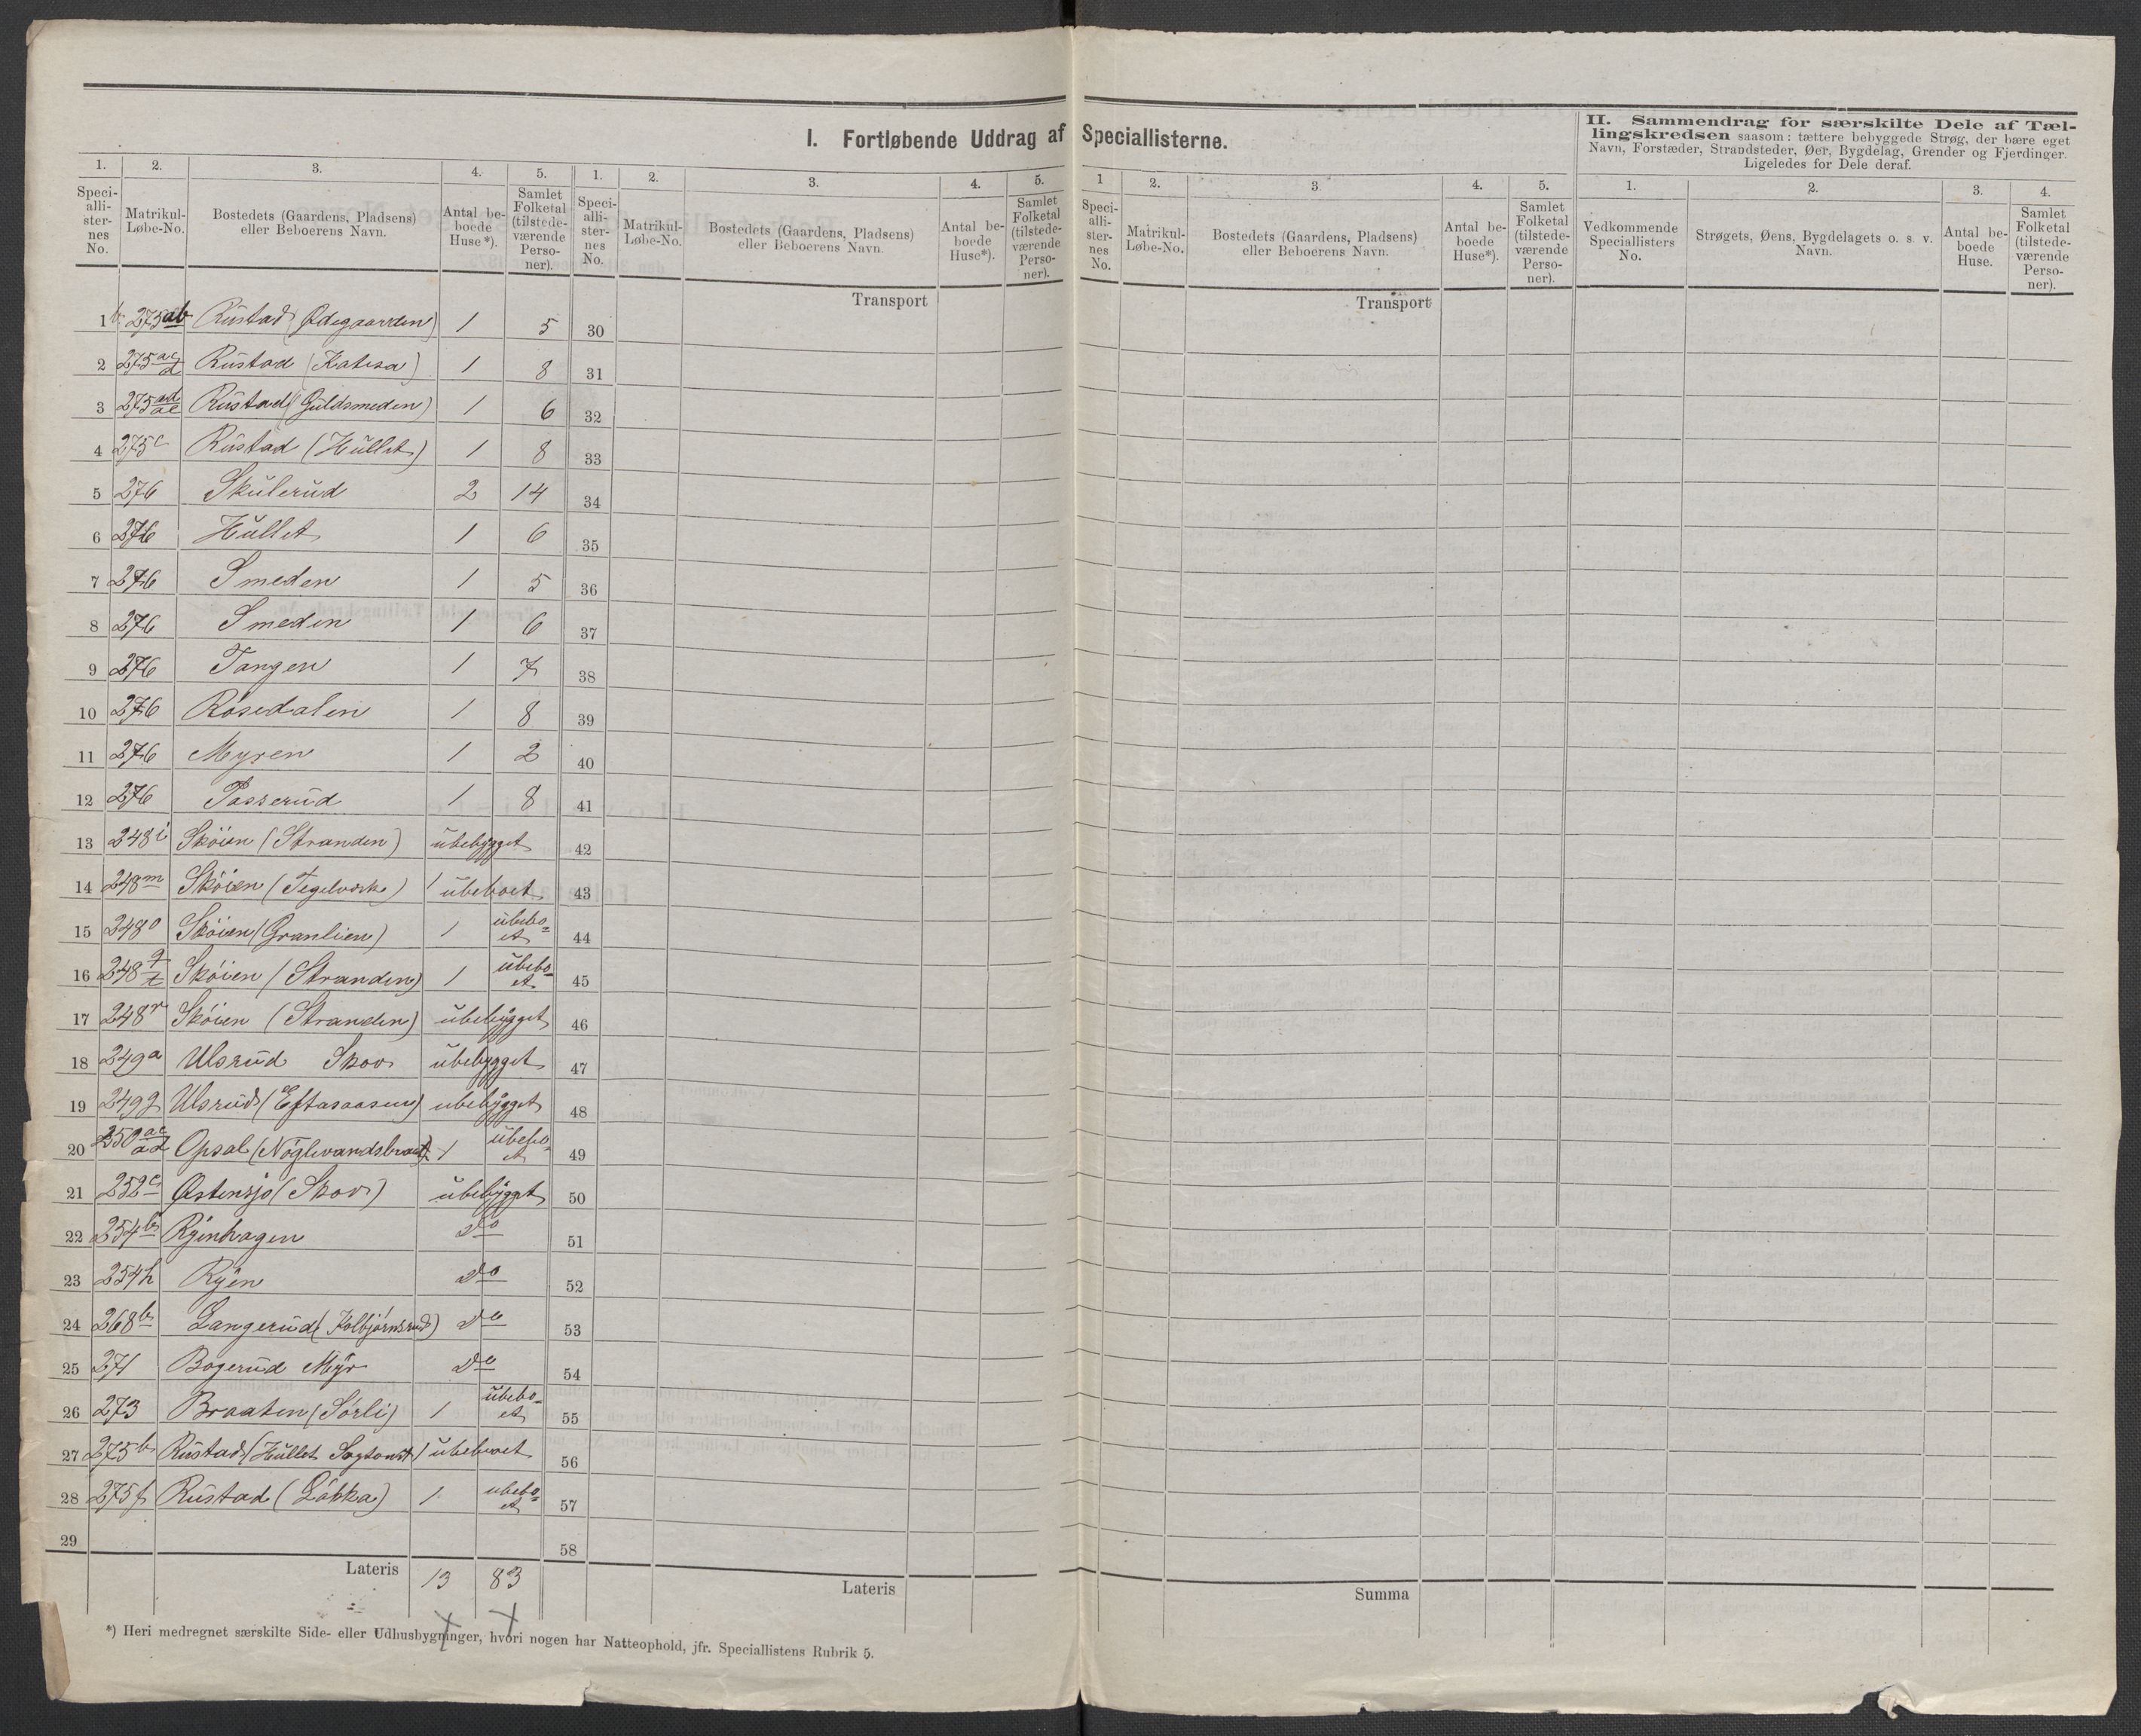 I. Fortløbende Uddrag af Speciallisterne.
II. Sammendrag for særskilte Dele af Tæl-
lingskredsen saasom: tættere bebyggede Strøg, der bære eget
Navn, Forstæder, Strandsteder, Øer, Bygdelag, Grender og Fjerdinger.
Ligeledes for Dele deraf.
1. 2. 3. 4. 5. 1. 2. 3. 4. 5. 1 2. 3. 4. 5. 1. 2. 3. 4.
Speci-
alli-
ster-
nes
No.
Matrikul-
Løbe-No.
Bostedets (Gaardens, Pladsens)
eller Beboerens Navn.
Antal be-
boede
Huse*).
Samlet
Folketal
(tilstede-
værende
Perso-
ner).
Speci-
alli-
ster-
nes
No.
Matrikul-
Løbe-No.
Bostedets (Gaardens, Pladsens)
eller Beboerens Navn.
Antal be-
boede
Huse*).
Samlet
Folketal
(tilstede-
værende
Perso-
ner).
Speci-
alli-
ster-
nes
No.
Matrikul-
Løbe-No.
Bostedets (Gaardens, Pladsens)
eller Beboerens Navn.
Antal be-
boede
Huse*).
Samlet
Folketal
(tilstede-
værende
Perso-
ner).
Vedkommende
Speciallisters
No.
Strøgets, Øens, Bygdelagets o. s. v.
Navn.
Antal be-
boede
Huse.
Samlet
Folketal
(tilstede-
værende
Perso-
ner).
Transport
Transport
1 275ab Rustad (Ødegaarden) 1 5 30
2 275ac d Rustad (Katisa) 1 8 31
3 275ad ae Rustad (Guldsmeden) 1 6 32
4 275c Rustad (Hullet) 1 8 33
5 276 Skulerud 2 14 34
6 276 Hullet 1 6 35
7 276 Smeden 1 5 36
8 276 Smeden 1 6 37
9 276 Tangen 1 7 38
10 276 Rosedalen 1 8 39
11 276 Myren 1 2 40
12 276 Passerud 1 8 41
13 248i Skøien (Stranden) ubebygget 42
14 248m Skøien (Tegelværke) 1 ubeboet 43
15 248o Skøien (Granlien) 1 ubebo=
et 44
16 248q t Skøien (Stranden) 1 ubebo=
et 45
17 248r Skøien (Stranden) ubebygget 46
18 249a Ulsrud Skov ubebygget 47
19 249g Ulsrud (Eftasaasen) ubebygget 48
20 250ac ad Opsal (Nøglevandsbraat) 1 ubebo=
et 49
21 252c Østensjø (Skov) ubebygget 50
22 254b Ryenhagen do 51
23 254h Ryen do 52
24 268b Langerud (Kolbjørnsrud) do 53
25 271 Bogerud Myr do 54
26 273 Braaten (Sørli) 1 ubebo=
et 55
27 275b Rustad (Hullet Sagtomt) 1 ubeboet 56
28 275f Rustad (Løkka) 1 ubebo=
et 57
29 58
Lateris 13 83
Lateris
Summa
*) Heri medregnet særskilte Side- eller Udhusbygninger, hvori nogen har Natteophold, jfr. Speciallistens Rubrik 5.